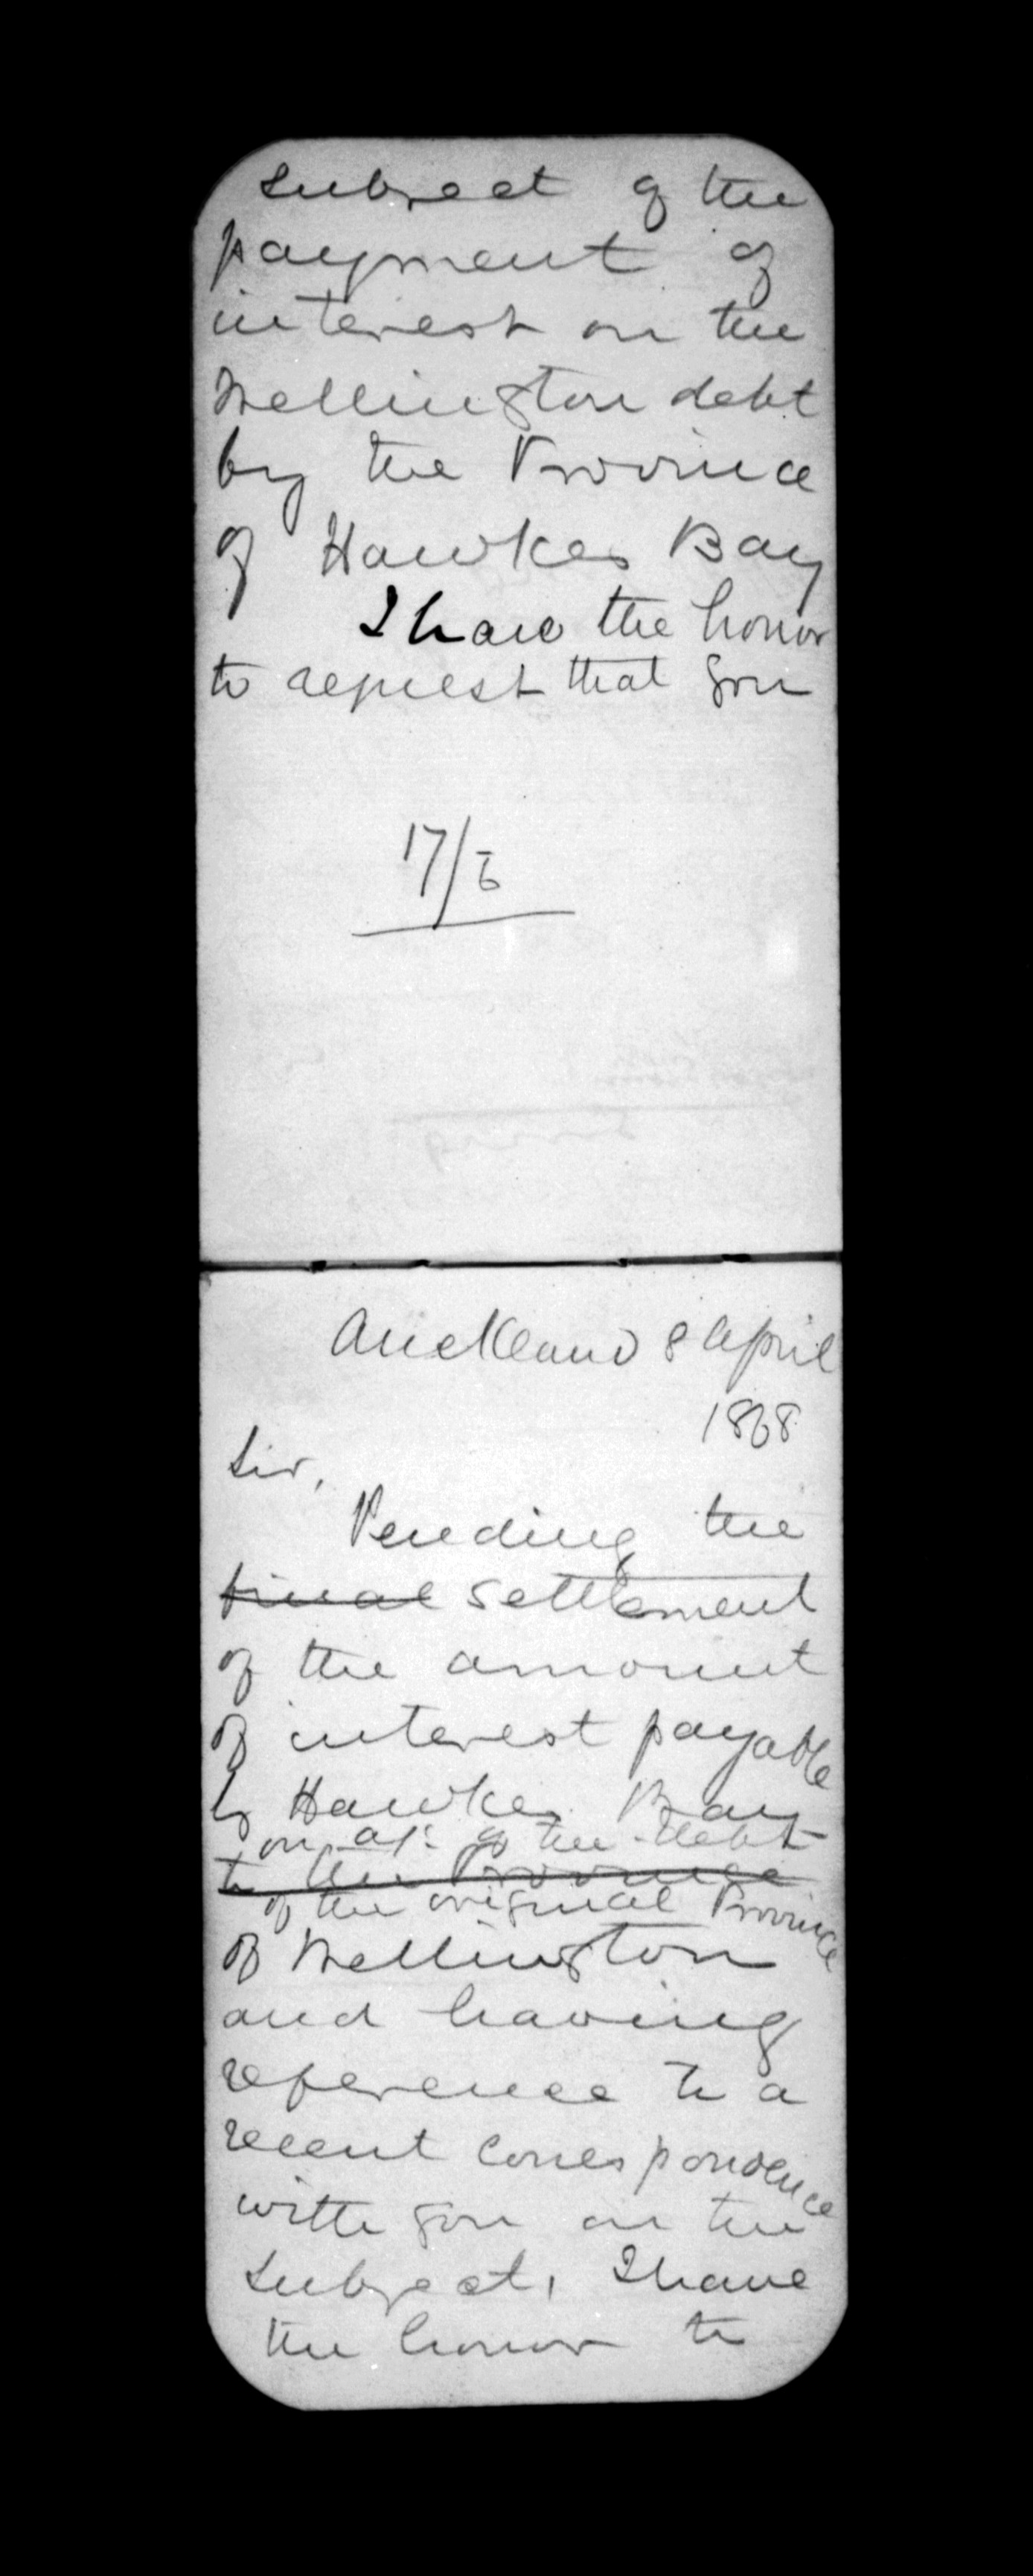 subject of the
payment of
interest on the
Wellington debt
by the Province
of Hawkes Bay
I have the honor
to request that you
17/6
Auckland 8 April
1868
Sir,
Pending the
final settlement
of the amount
of interest payable
by Hawkes Bay
on a/c of the debt
to the Province
of the original Province
of Wellington
and having
reference to a
recent correspondence
with you on the
subject, I have
the honor to